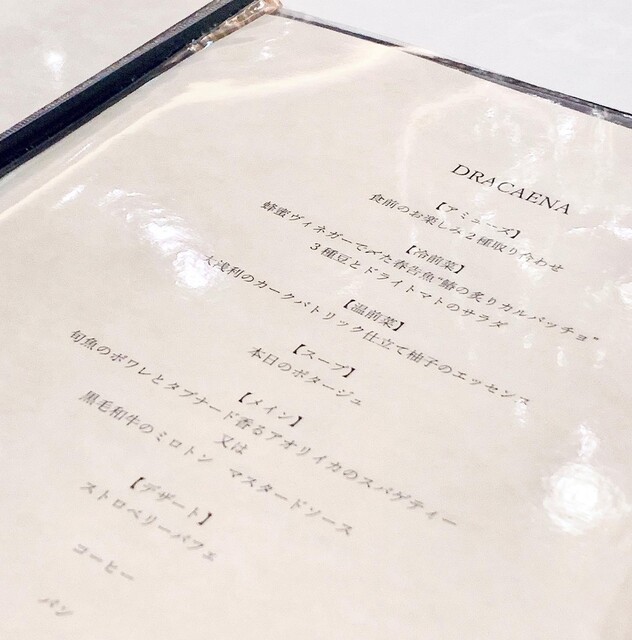 DRACAENA
【アミューズ】
食前のお楽しみ2種取り合わせ
【冷前菜】
蜂蜜ヴィネガーで〆た春告魚"鰆の炙りカルパッチョ"
3種豆とドライトマトのサラダ
【温前菜】
大浅利のカークパトリック仕立て柚子のエッセンス
【スープ】
本日のポタージュ
【メイン】
旬魚のポワレとタプナード香るアオリイカのスパゲティー
又は
黒毛和牛のミロトン マスタードソース
【デザート】
ストロベリーパフェ
コーヒー
パン